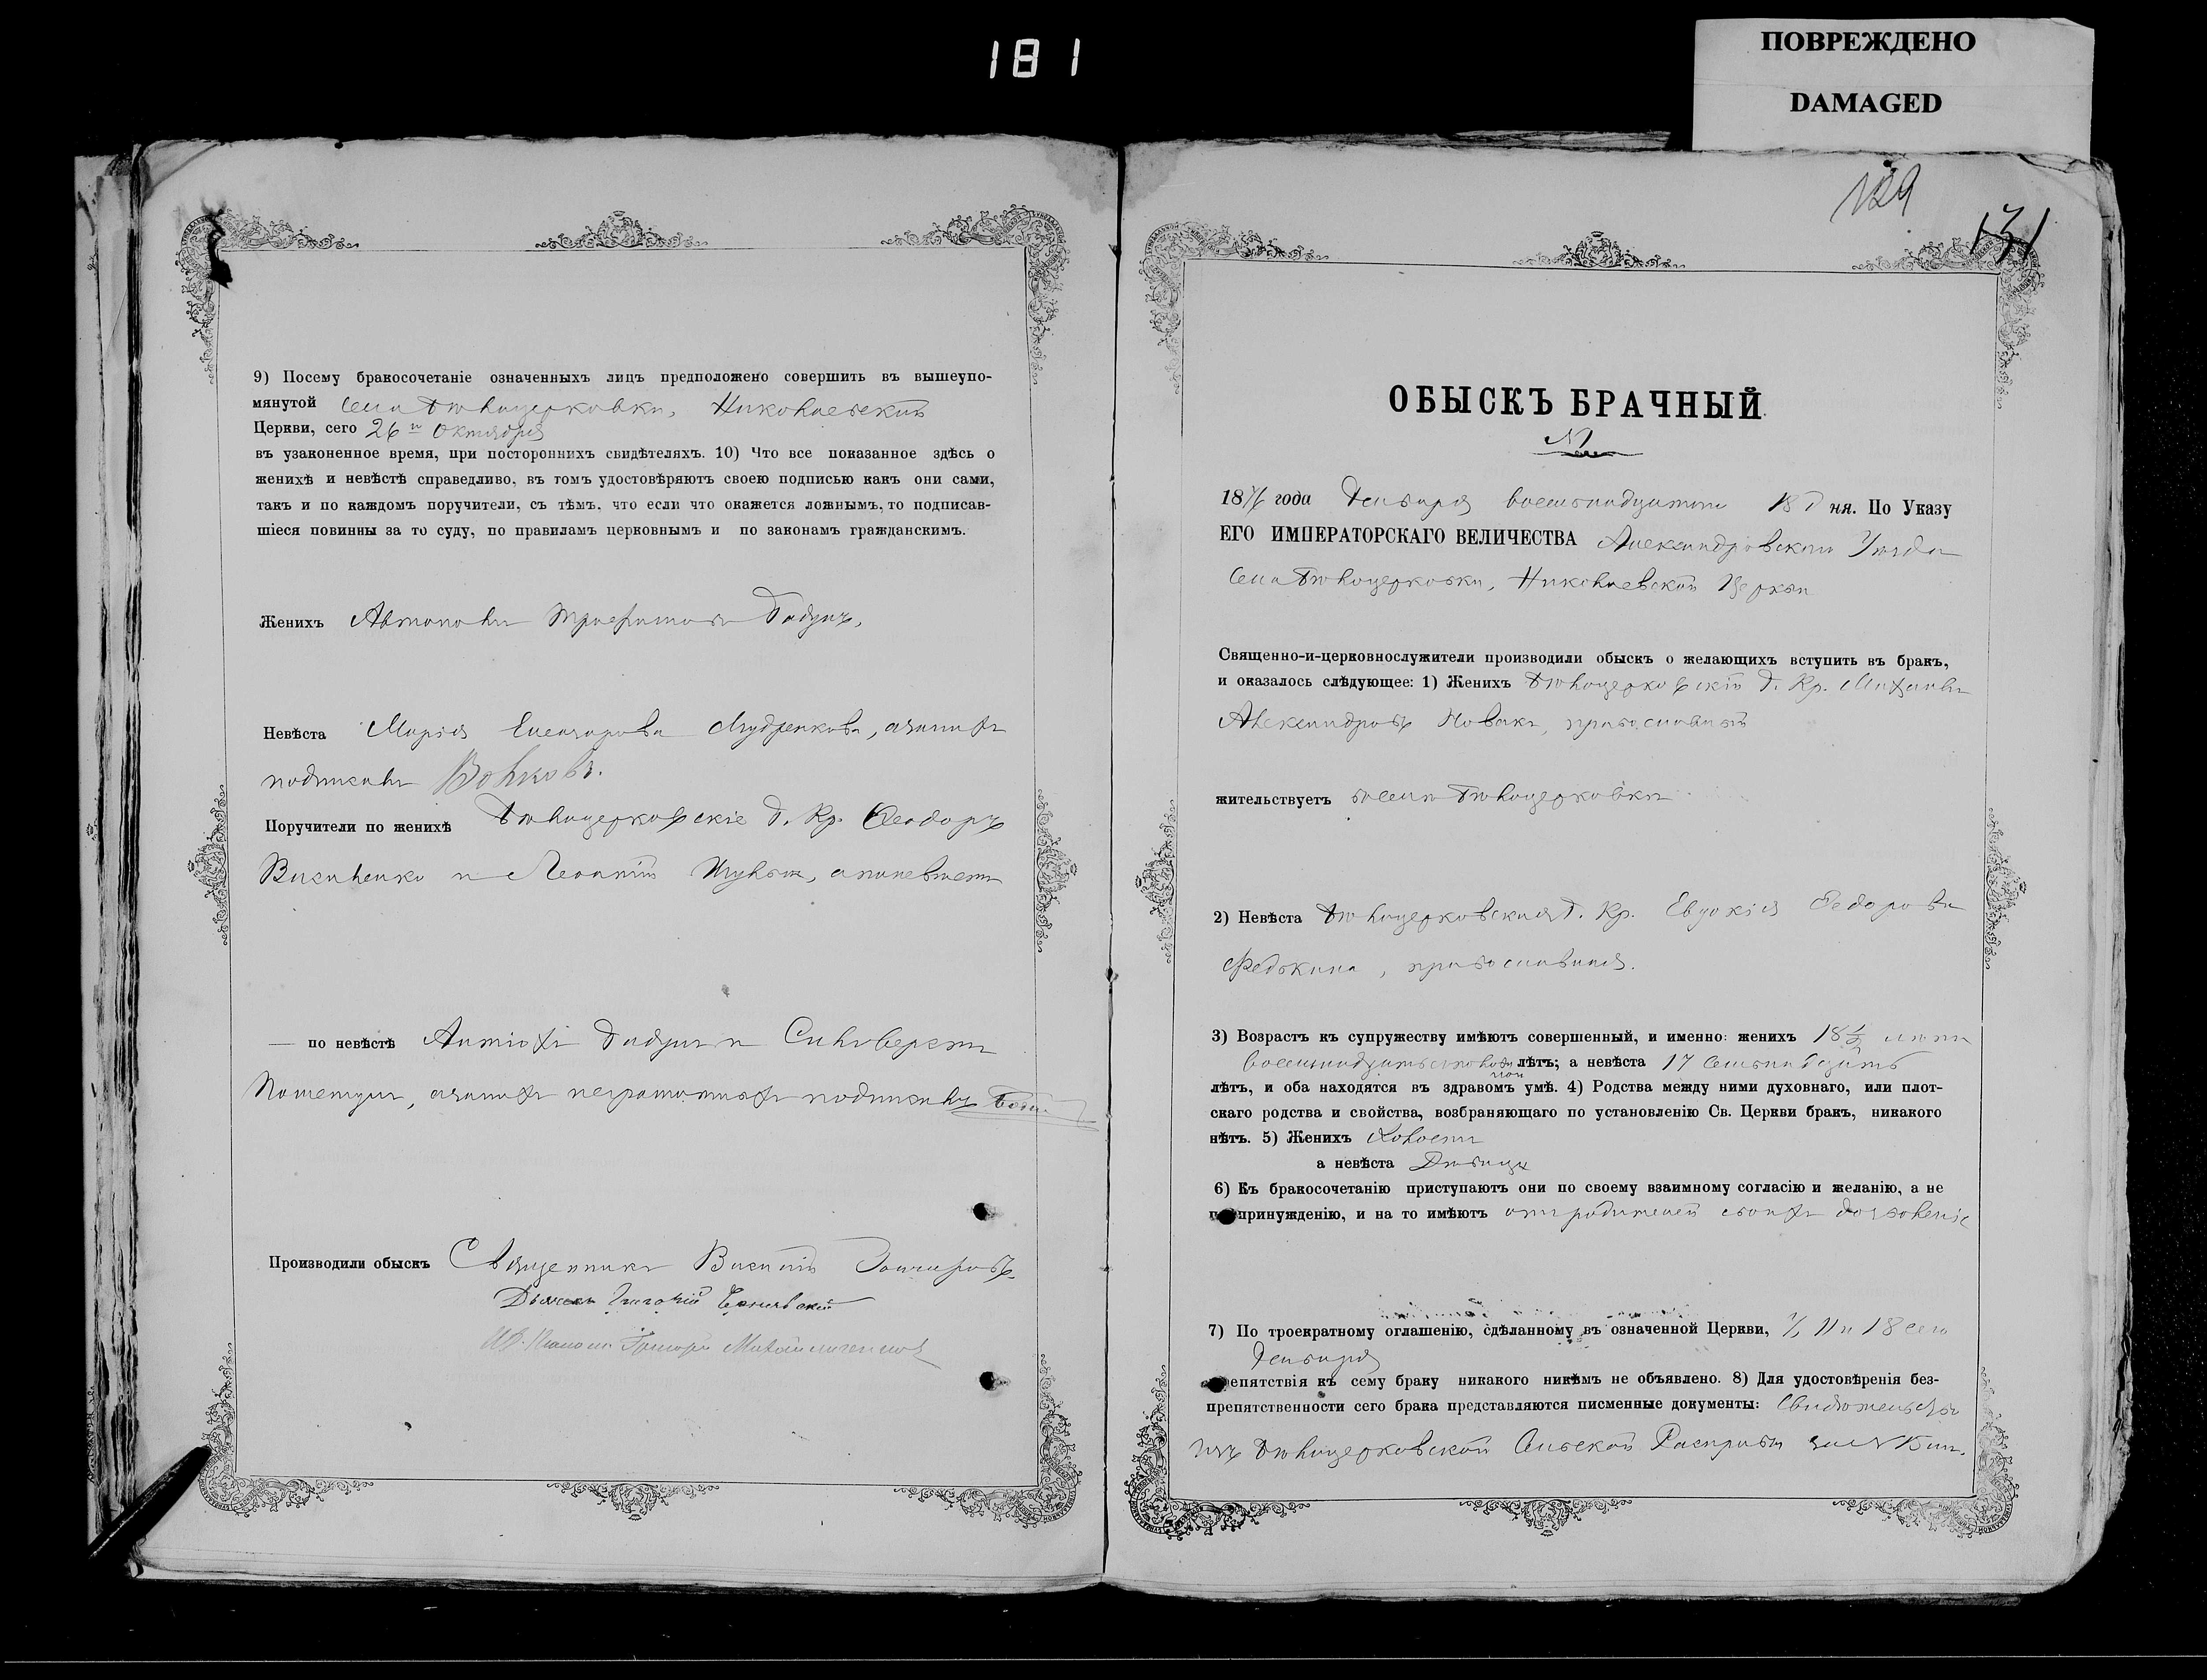 181
ПОВРЕЖДЕНО
DAMAGED
9) Посему бракосочетаніе означенныхъ лицъ предположено совершить въ вышеупо-
мянутой села Бѣлоцерковки, Николаевской
Церкви, сего 26го Октября
въ узаконенное время, при постороннихъ свидѣтеляхъ. 10) Что все показанное здѣсь о
женихѣ и невѣстѣ справедливо, въ томъ удостовѣряютъ своею подписью какъ они сами,
такъ и по каждомъ поручители, съ тѣмъ, что если что окажется ложнымъ, то подписав-
шіеся повинны за то суду, по правиламъ церковнымъ и по законамъ гражданскимъ.
Женихъ Трофимовъ
Невѣста Марія Елеазарова Мудренкова, а за нихъ
подписалъ Волковъ.
Поручители по женихѣ Бѣлоцерковскіе Г. Кр. Ѳеодоръ
Василенко и Леонтій а по невѣстѣ
— по невѣстѣ Антіохъ и Сильверстъ
а за нихъ неграмотныхъ подписалъ
Производили обыскъ Священникъ Василій Гончаровъ
Дьячекъ Григорій
Григорій
129
131
ОБЫСКЪ БРАЧНЫЙ
№
1876 года Генваря восемнадцатаго 18 дня. По Указу
ЕГО ИМПЕРАТОРСКАГО ВЕЛИЧЕСТВА Александровскаго Уѣзда
села Бѣлоцерковки, Николаевской Церкви
Священно-и-церковнослужители производили обыскъ о желающихъ вступить въ бракъ,
и оказалось слѣдующее: 1) Женихъ Бѣлоцерковскій Г. Кр. Михаилъ
Александровъ Новакъ, православный
жительствуетъ въ селѣ Бѣлоцерковкѣ
2) Невѣста Бѣлоцерковская Г. Кр. Евдокія Федорова
Федькина, православная.
3) Возрастъ къ супружеству имѣютъ совершенный, и именно: женихъ 18 1/2 лѣтъ
восемнадцать съ половиной лѣтъ; а невѣста 17 семнадцать
лѣтъ, и оба находятся въ здравомъ умѣ. 4) Родства между ними духовнаго, или плот-
скаго родства и свойства, возбраняющаго по установленію Св. Церкви бракъ, никакого
нѣтъ. 5) Женихъ холостъ
а невѣста Дѣвица
6) Къ бракосочетанію приступаютъ они по своему взаимному согласію и желанію, а не
по принужденію, и на то имѣютъ отъ родителей своихъ дозволеніе
7) По троекратному оглашенію, сдѣланному въ означенной Церкви, 11 и 18 сего
Генваря
препятствія къ сему браку никакого никѣмъ не объявлено. 8) Для удостовѣренія без-
препятственности сего брака представляются писменные документы: Свидѣтельство
изъ Бѣлоцерковской Сельской Расправы за № 15